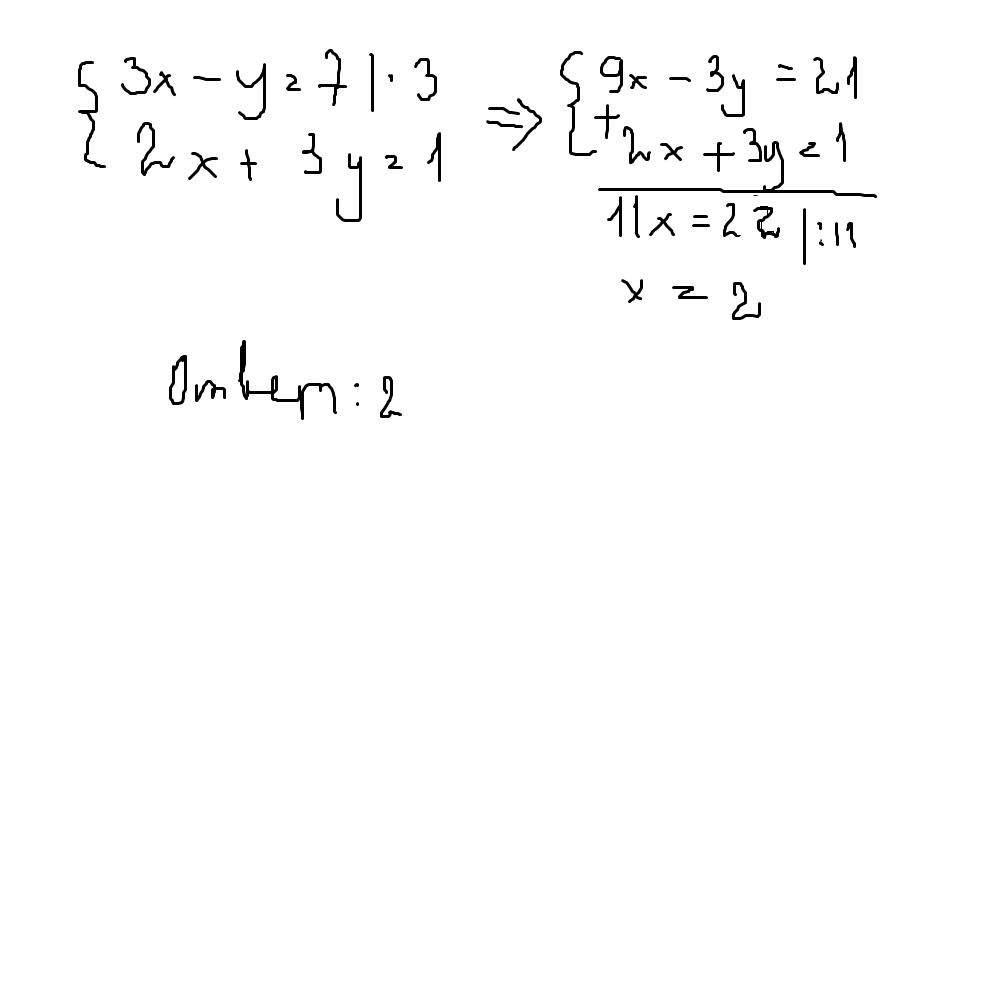 { 3x - y = 7 | · 3
2x + 3y = 1
⇒ { 9x - 3y = 21
+ 2x + 3y = 1
11x = 22 | : 11
x = 2
Ответ: 2